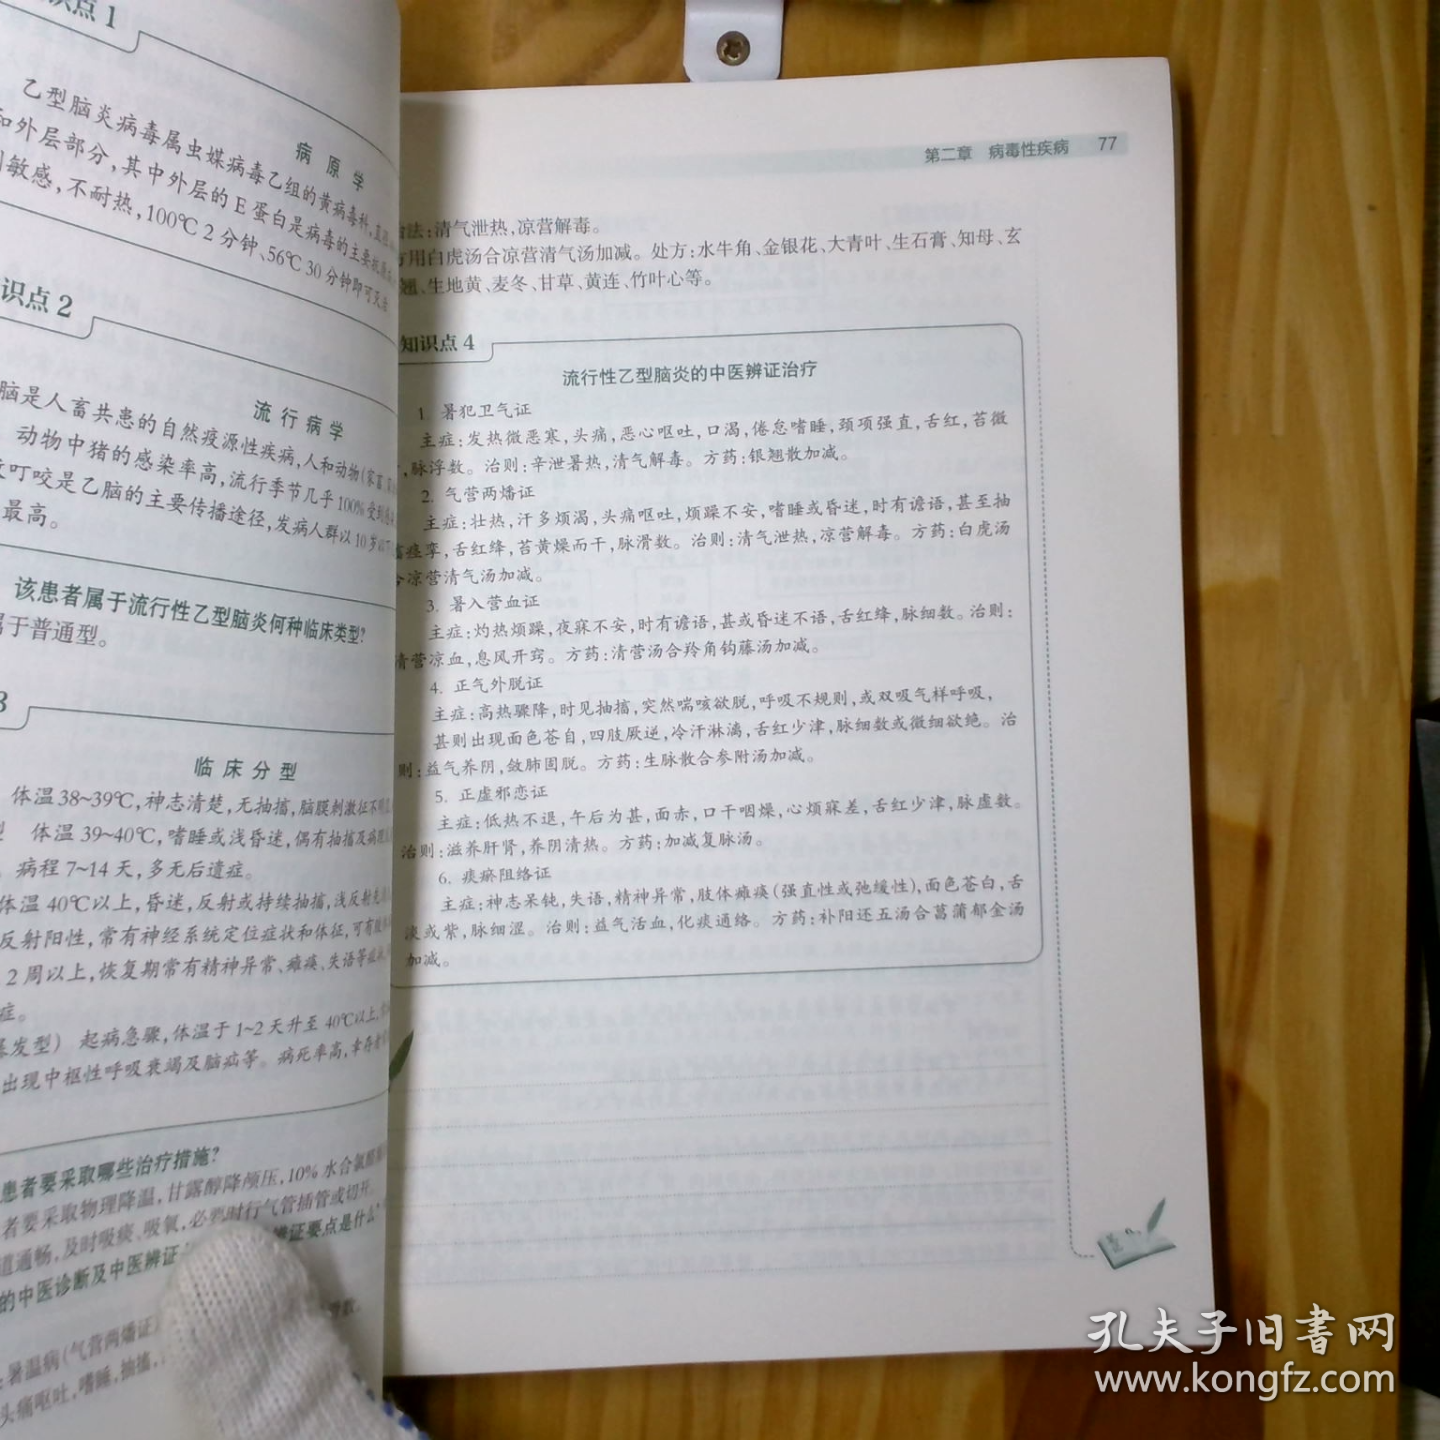 识点 1
病 原 学
乙型脑炎病毒属虫媒病毒乙组的黄病毒科,直径
和外层部分,其中外层的 E 蛋白是病毒的主要抗原
敏感,不耐热,100℃ 2 分钟、56℃ 30 分钟即可灭活
识点 2
流 行 病 学
脑是人畜共患的自然疫源性疾病,人和动物(家畜
动物中猪的感染率高,流行季节几乎 100% 受到感
叮咬是乙脑的主要传播途径,发病人群以 10 岁以下
最高。
该患者属于流行性乙型脑炎何种临床类型?
属于普通型。
3
临 床 分 型
体温 38~39℃,神志清楚,无抽搐,脑膜刺激征不明显
型 体温 39~40℃,嗜睡或浅昏迷,偶有抽搐及病理
病程 7~14 天,多无后遗症。
体温 40℃以上,昏迷,反射或持续抽搐,浅反射
反射阳性,常有神经系统定位症状和体征,可有
2 周以上,恢复期常有精神异常、瘫痪、失语等症
症。
暴发型) 起病急骤,体温于 1~2 天升至 40℃以上,
出现中枢性呼吸衰竭及脑疝等。病死率高,幸存者
患者要采取哪些治疗措施?
者要采取物理降温,甘露醇降颅压,10% 水合氯醛
道通畅,及时吸痰、吸氧,必要时行气管插管或切开。
的中医诊断及中医辨证 辨证要点是什么
:暑温病(气营两燔证)
头痛呕吐,嗜睡,抽搐,
第二章 病毒性疾病 77
治法:清气泄热,凉营解毒。
方用白虎汤合凉营清气汤加减。处方:水牛角、金银花、大青叶、生石膏、知母、玄
翘、生地黄、麦冬、甘草、黄连、竹叶心等。
知识点 4
流行性乙型脑炎的中医辨证治疗
1. 暑犯卫气证
主症:发热微恶寒,头痛,恶心呕吐,口渴,倦怠嗜睡,颈项强直,舌红,苔微
,脉浮数。治则:辛泄暑热,清气解毒。方药:银翘散加减。
2. 气营两燔证
主症:壮热,汗多烦渴,头痛呕吐,烦躁不安,嗜睡或昏迷,时有谵语,甚至抽
搐痉挛,舌红绛,苔黄燥而干,脉滑数。治则:清气泄热,凉营解毒。方药:白虎汤
合凉营清气汤加减。
3. 暑入营血证
主症:灼热烦躁,夜寐不安,时有谵语,甚或昏迷不语,舌红绛,脉细数。治则:
清营凉血,息风开窍。方药:清营汤合羚角钩藤汤加减。
4. 正气外脱证
主症:高热骤降,时见抽搐,突然喘咳欲脱,呼吸不规则,或双吸气样呼吸,
甚则出现面色苍白,四肢厥逆,冷汗淋漓,舌红少津,脉细数或微细欲绝。治
则:益气养阴,敛肺固脱。方药:生脉散合参附汤加减。
5. 正虚邪恋证
主症:低热不退,午后为甚,面赤,口干咽燥,心烦寐差,舌红少津,脉虚数。
治则:滋养肝肾,养阴清热。方药:加减复脉汤。
6. 痰瘀阻络证
主症:神志呆钝,失语,精神异常,肢体瘫痪(强直性或弛缓性),面色苍白,舌
淡或紫,脉细涩。治则:益气活血,化痰通络。方药:补阳还五汤合菖蒲郁金汤
加减。
孔夫子旧书网
www.kongfz.com